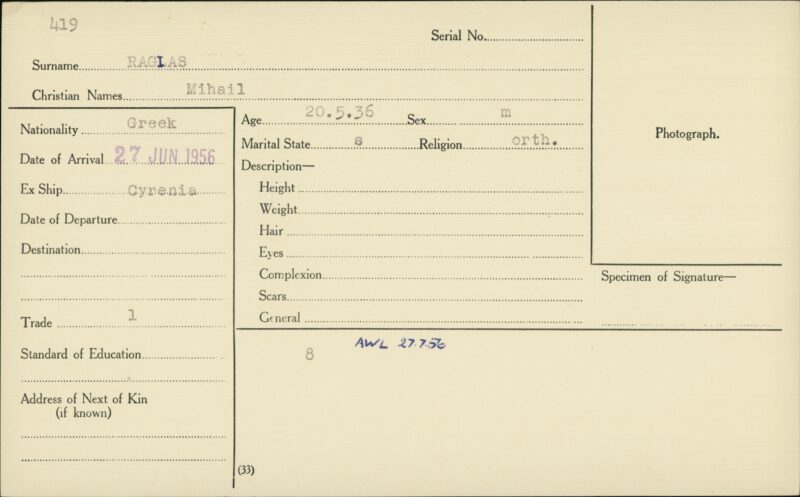 419
Serial No.
Surname RAGLAS
Christian Names Mihail
Nationality Greek
Date of Arrival 27 JUN 1956
Ex Ship Cyrenia
Date of Departure
Destination
Trade 1
Standard of Education
Address of Next of Kin
(if known)
Age 20.5.36 Sex m
Marital State s Religion orth.
Description—
Height
Weight
Hair
Eyes
Complexion
Scars
General
Photograph.
Specimen of Signature—
8 AWL 27.7.56
(33)